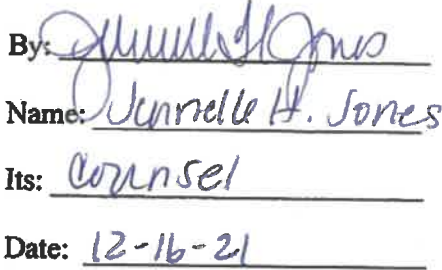 By: Jennelle H Jones
Name: Jennelle H. Jones
Its: Counsel
Date: 12-16-21